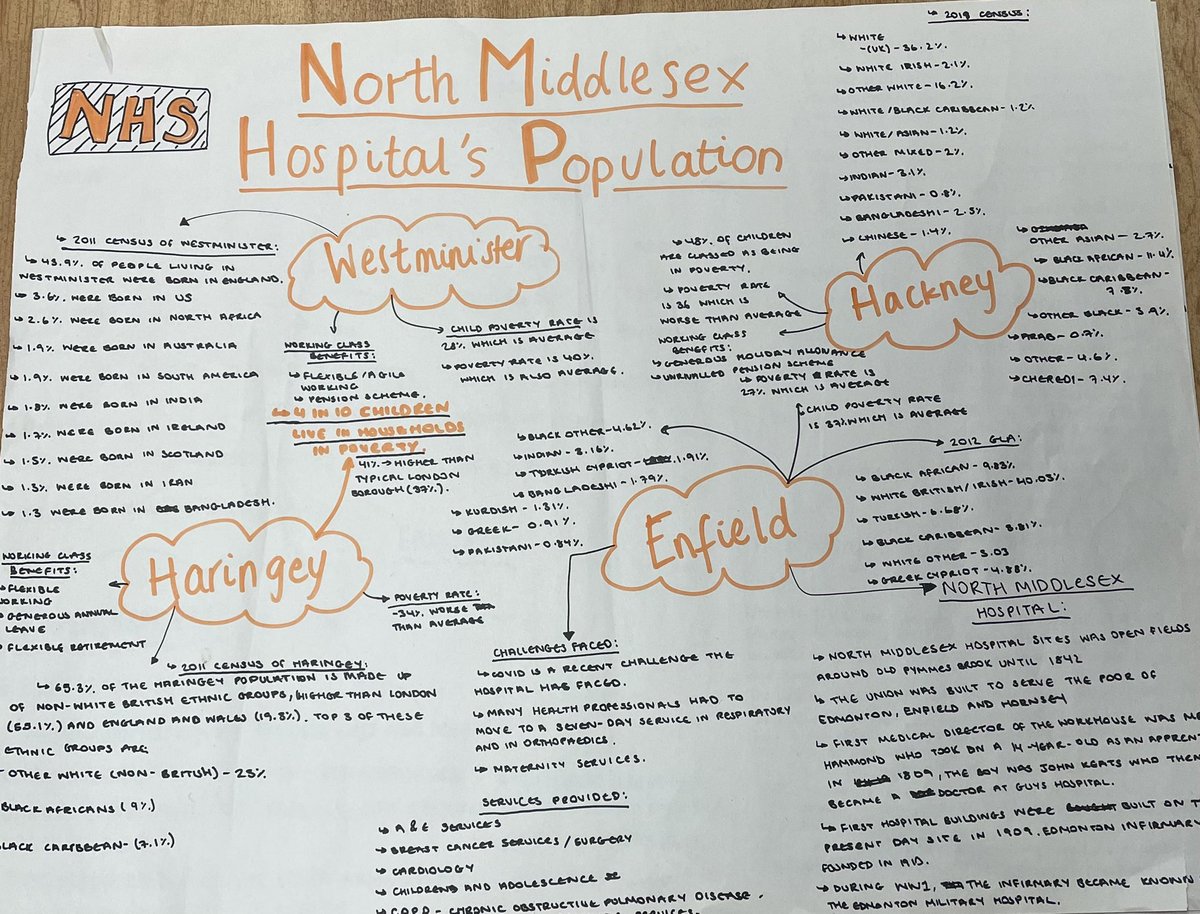 NHS
North Middlesex
Hospital's Population
↳ 2018 CENSUS:
↳ WHITE
-(UK)-36.2%.
↳ WHITE IRISH-2.1%.
↳ OTHER WHITE-16.2%.
↳ WHITE/BLACK CARIBBEAN-1.2%.
↳ WHITE/ASIAN-1.2%.
↳ OTHER MIXED-2%.
↳ INDIAN-3.1%.
↳ PAKISTANI-0.8%.
↳ BANGLADESHI-2.5%.
↳ CHINESE-1.4%.
OTHER ASIAN-2.7%.
↳ BLACK AFRICAN-11.4%.
↳ BLACK CARIBBEAN-
7.8%.
↳ OTHER BLACK-3.9%.
↳ ARAB-0.7%.
↳ OTHER-4.6%.
↳ CHEREDI-7.4%.
Hackney
↳ 48% OF CHILDREN
ARE CLASSED AS BEING
IN POVERTY.
↳ POVERTY RATE
IS 36 WHICH IS
WORSE THAN AVERAGE
WORKING CLASS
BENEFITS:
↳ GENEROUS HOLIDAY ALLOWANCE
↳ UNRIVALLED PENSION SCHEME
Westminister
↳ 2011 CENSUS OF WESTMINISTER:
↳ 43.9%. OF PEOPLE LIVING IN
WESTMINISTER WERE BORN IN ENGLAND.
↳ 3.6% WERE BORN IN US
↳ 2.6% WERE BORN IN NORTH AFRICA
↳ 1.9% WERE BORN IN AUSTRALIA
↳ 1.9% WERE BORN IN SOUTH AMERICA
↳ 1.8% WERE BORN IN INDIA
↳ 1.7% WERE BORN IN IRELAND
↳ 1.5% WERE BORN IN SCOTLAND
↳ 1.3% WERE BORN IN IRAN
↳ 1.3 WERE BORN IN BANGLADESH.
WORKING CLASS
BENEFITS:
↳ FLEXIBLE/AGILA
WORKING
↳ PENSION SCHEME.
CHILD POVERTY RATE IS
28% WHICH IS AVERAGE
↳ POVERTY RATE IS 40%
WHICH IS ALSO AVERAGE.
↳ 4 IN 10 CHILDREN
LIVE IN HOUSEHOLDS
IN POVERTY.
41% → HIGHER THAN
TYPICAL LONDON
BOROUGH (37%).
Haringey
WORKING CLASS
BENEFITS:
↳ FLEXIBLE
WORKING
↳ GENEROUS ANNUAL
LEAVE
↳ FLEXIBLE RETIREMENT
POVERTY RATE:
-34% WORSE
THAN AVERAGE
↳ 2011 CENSUS OF HARINGEY:
↳ 65.3% OF THE HARINGEY POPULATION IS MADE UP
OF NON-WHITE BRITISH ETHNIC GROUPS, HIGHER THAN LONDON
(55.1%) AND ENGLAND AND WALES (19.3%). TOP 3 OF THESE
ETHNIC GROUPS ARE
- OTHER WHITE (NON-BRITISH)-23%
BLACK AFRICANS (9%)
BLACK CARIBBEAN-(7.1%)
Enfield
↳ POVERTY RATE IS
27% WHICH IS AVERAGE
↳ CHILD POVERTY RATE
IS 37% WHICH IS AVERAGE
↳ BLACK OTHER-4.62%.
↳ INDIAN-3.16%.
↳ TURKISH CYPRIOT-1.91%.
↳ BANGLADESHI-1.79%.
↳ KURDISH-1.31%
↳ GREEK-0.91%
↳ PAKISTANI-0.84%
↳ 2012 GLA:
↳ BLACK AFRICAN-9.83%.
↳ WHITE BRITISH/IRISH-40.03%.
↳ TURKISH-6.68%.
↳ BLACK CARIBBEAN-5.81%.
↳ WHITE OTHER-5.03
↳ GREEK CYPRIOT-4.88%.
CHALLENGES FACED:
↳ COVID IS A RECENT CHALLENGE THE
HOSPITAL HAS FACED.
↳ MANY HEALTH PROFESSIONALS HAD TO
MOVE TO A SEVEN-DAY SERVICE IN RESPIRATORY
AND IN ORTHOPAEDICS.
↳ MATERNITY SERVICES.
SERVICES PROVIDED:
↳ A&E SERVICES
↳ BREAST CANCER SERVICES/SURGERY
↳ CARDIOLOGY
↳ CHILDRENS AND ADOLESCENCE
↳ COPD-CHRONIC OBSTRUCTIVE PULMONARY DISEASE.
NORTH MIDDLESEX
HOSPITAL:
↳ NORTH MIDDLESEX HOSPITAL SITES WAS OPEN FIELDS
AROUND OLD PYMMES BROOK UNTIL 1842
↳ THE UNION WAS BUILT TO SERVE THE POOR OF
EDMONTON, ENFIELD AND HORNSEY
↳ FIRST MEDICAL DIRECTOR OF THE WORKHOUSE WAS
HAMMOND WHO TOOK ON A 14-YEAR-OLD AS AN
IN 1809, THE BOY WAS JOHN KEATS WHO THEN
BECAME A DOCTOR AT GUYS HOSPITAL.
↳ FIRST HOSPITAL BUILDINGS WERE BUILT ON
PRESENT DAY SITE IN 1909. EDMONTON INFIRMARY
FOUNDED IN 1910.
↳ DURING WW1, THE INFIRMARY BECAME KNOWN
THE EDMONTON MILITARY HOSPITAL.